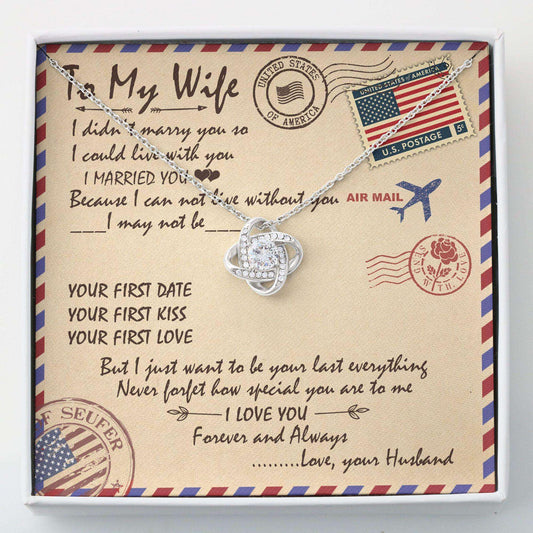 To My Wife
UNITED STATES
OF AMERICA
UNITED STATES OF AMERICA
U.S. POSTAGE 5¢
I didn't marry you so
I could live with you
I MARRIED YOU
Because I can not live without you
AIR MAIL
___I may not be___
SEND WITH LOVE
YOUR FIRST DATE
YOUR FIRST KISS
YOUR FIRST LOVE
But I just want to be your last everything
Never forfet how special you are to me
I LOVE YOU
Forever and Always
.........Love, your Husband
F SEUFER